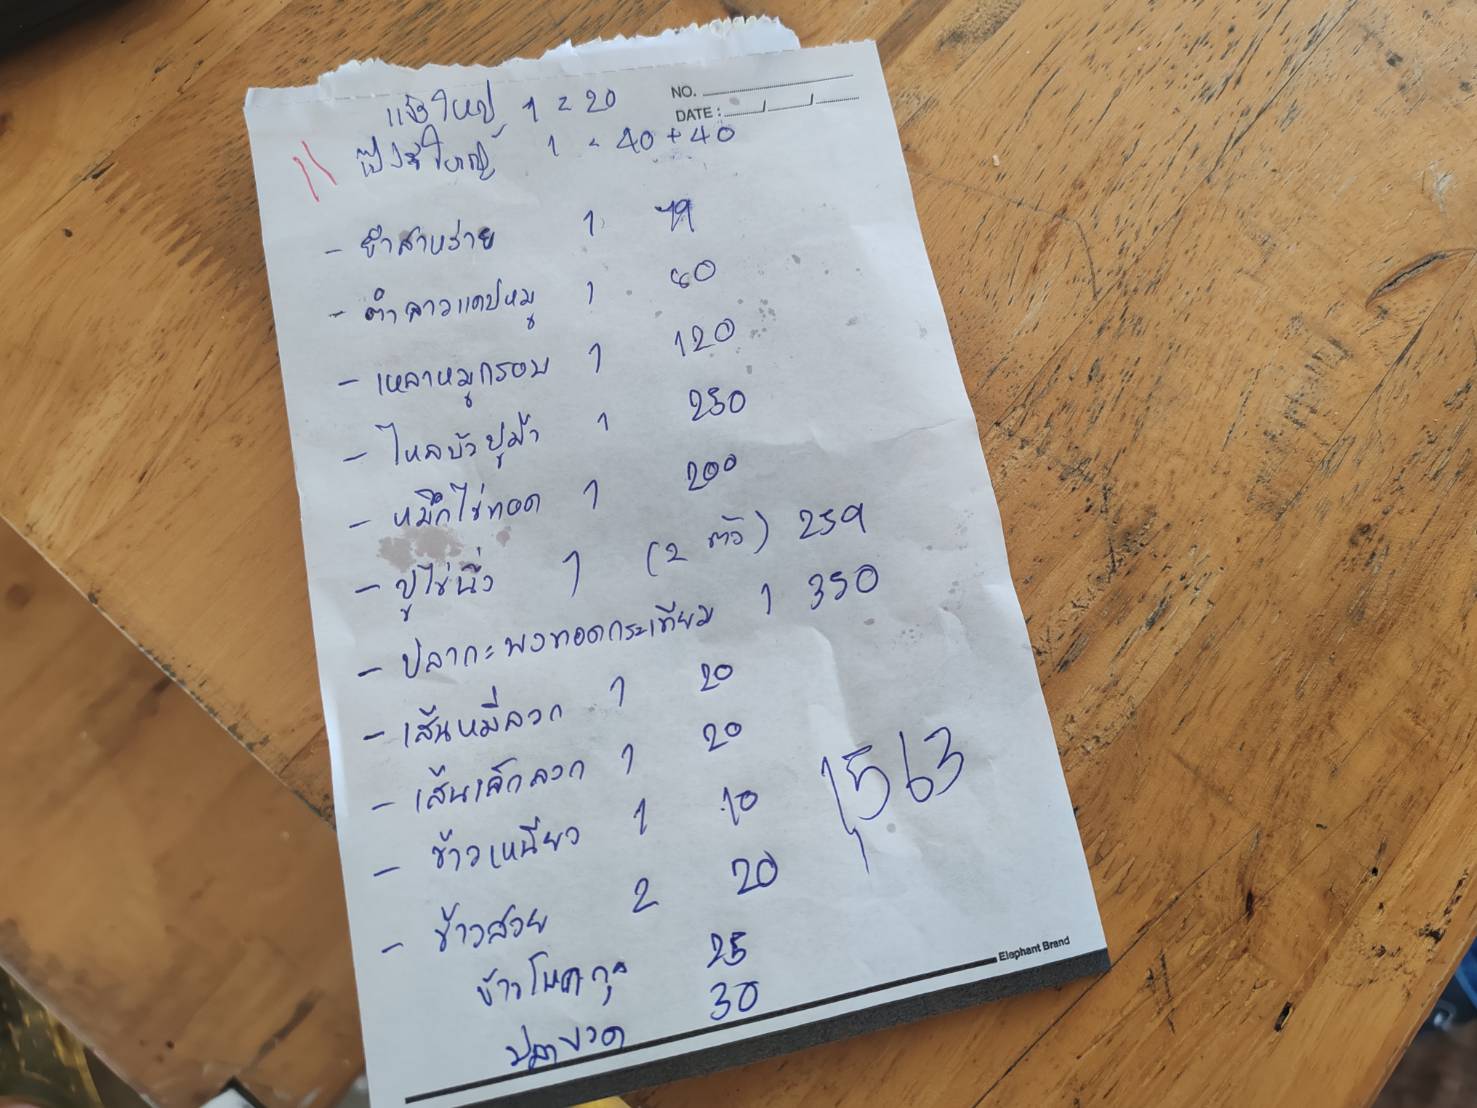 NO.
DATE : / /
แข็งใหญ่ 1 = 20
เป๊ปซี่ใหญ่ 1 = 40 + 40
- ยำสาหร่าย 1 79
- ตำลาวแคปหมู 1 60
- เหลาหมูกรอบ 1 120
- ไหลบัวปูม้า 1 250
- หมึกไข่ทอด 1 200
- ปูไข่นึ่ง 1 (2 ตัว) 259
- ปลากะพงทอดกระเทียม 1 350
- เส้นหมี่ลวก 1 20
- เส้นเล็กลวก 1 20
- ข้าวเหนียว 1 10
1563
- ข้าวสวย 2 20
ข้าวโพด 25
30
Elephant Brand